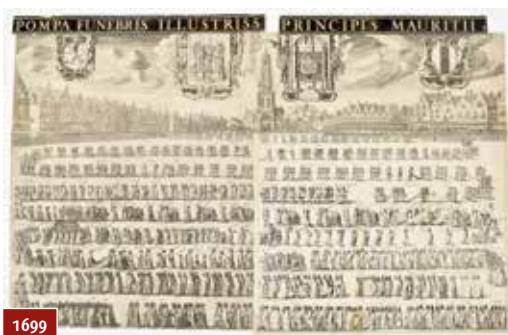 POMPA FUNEBRIS ILLUSTRISS PRINCIPIS MAURITII
1699